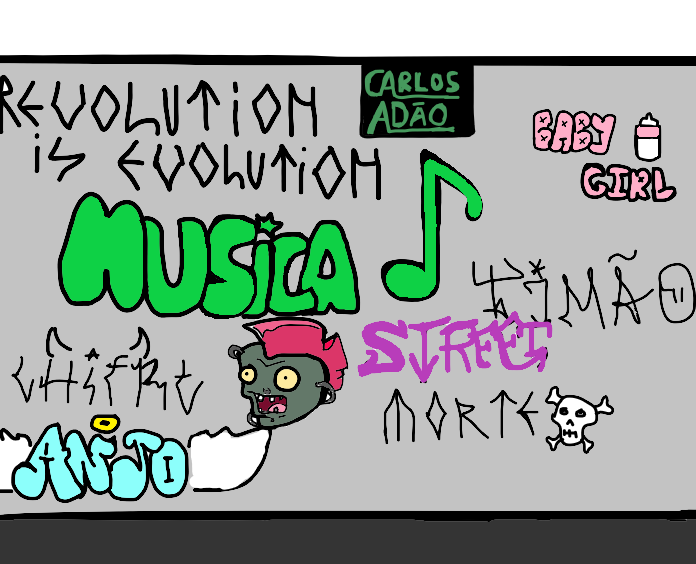 REVOLUTION
IS EVOLUTION
CARLOS
ADÃO
BABY
GIRL
MUSICA
TIMÃO
STREET
CHIFRE
MORTE
ANJO